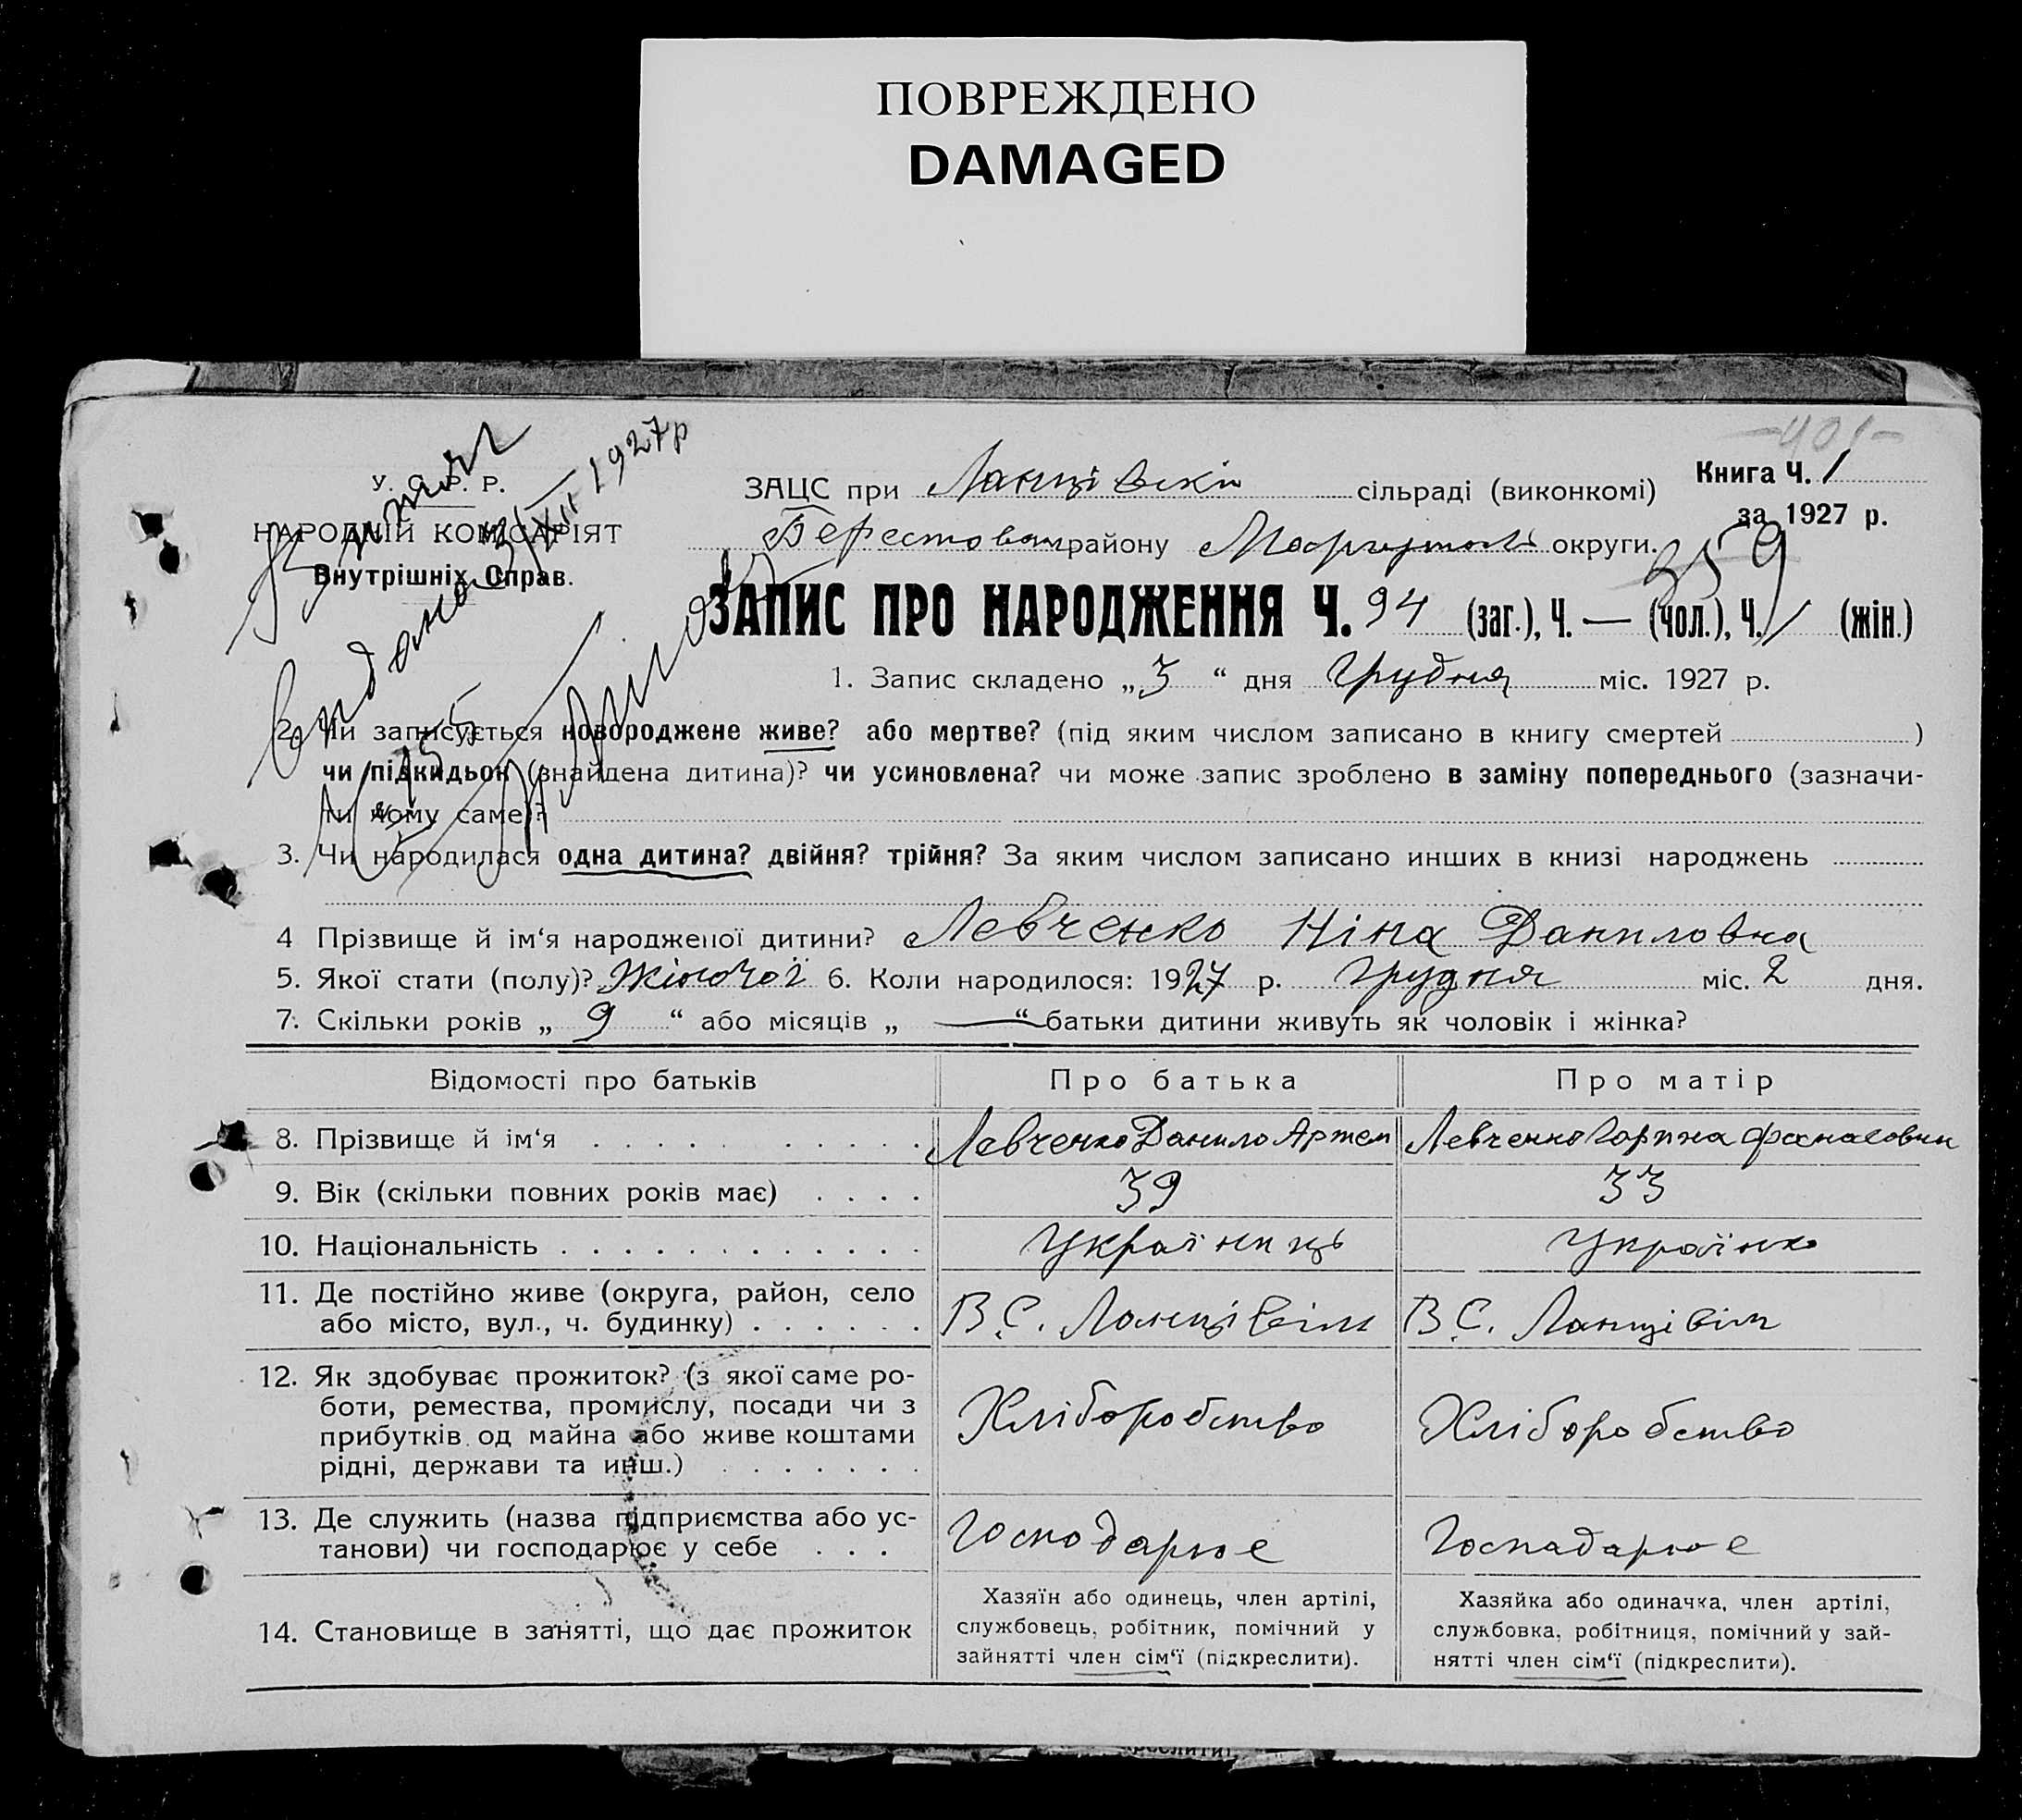 ПОВРЕЖДЕНО
DAMAGED
-401-
У. С. Р. Р.
НАРОДНІЙ КОМІСАРІЯТ
Внутрішніх Справ.
3/XII 1927р
ЗАЦС при Ланцівскій сільраді (виконкомі)
Книга Ч. 1
за 1927 р.
Берестовом району округи.
359
ЗАПИС ПРО НАРОДЖЕННЯ Ч. 94 (заг.), Ч. — (чол.), Ч. / (жін.)
1. Запис складено „ 3 “ дня Грудня міс. 1927 р.
2. Чи записується новороджене живе? або мертве? (під яким числом записано в книгу смертей )
чи підкидьок (знайдена дитина)? чи усиновлена? чи може запис зроблено в заміну попереднього (зазначи-
ти чому саме)?
3. Чи народилася одна дитина? двійня? трійня? За яким числом записано инших в книзі народжень
4 Прізвище й ім‘я народженої дитини? Левченко Ніна Даниловна
5. Якої стати (полу)? Жіночої 6. Коли народилося: 1927 р. Грудня міс. 2 дня.
7. Скільки років „ 9 “ або місяців „ — “ батьки дитини живуть як чоловік і жінка?
Відомості про батьків Про батька Про матір
8. Прізвище й ім‘я Левченко Данило Артем Левченко Горпина Фанасовни
9. Вік (скільки повних років має) 39 33
10. Національність Українищь Українка
11. Де постійно живе (округа, район, село
або місто, вул., ч. будинку) В С. Ланцівім В С. Ланцівім
12. Як здобуває прожиток? (з якої саме ро-
боти, ремества, промислу, посади чи з
прибутків од майна або живе коштами
рідні, держави та инш.) Хліборобство Хліборобство
13. Де служить (назва підприємства або ус-
танови) чи господарює у себе Господарює Госпадарює
14. Становище в занятті, що дає прожиток
Хазяїн або одинець, член артілі,
службовець, робітник, помічний у
зайнятті член сім‘ї (підкреслити).
Хазяйка або одиначка, член артілі,
службовка, робітниця, помічний у зай-
нятті член сім‘ї (підкреслити).